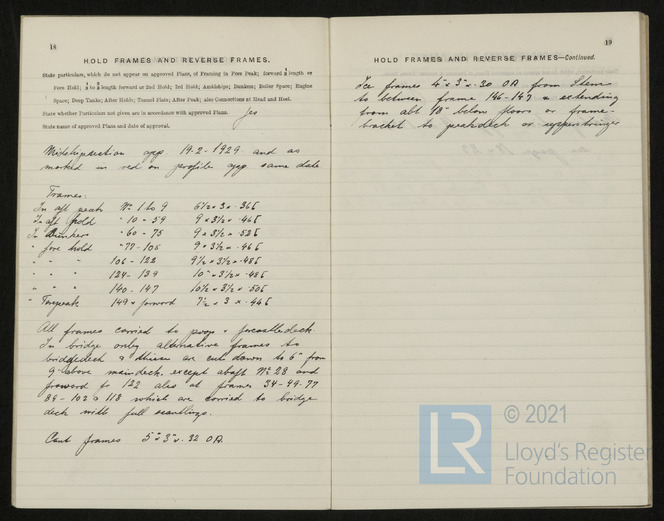 18
HOLD FRAMES AND REVERSE FRAMES.
State particulars, which do not appear on approved Plans, of Framing in Fore Peak; forward 1/5 length or
Fore Hold; to length forward or 2nd Hold; 3rd Hold; Amidships; Bunkers; Boiler Space; Engine
Space; Deep Tanks; After Holds; Tunnel Flats; After Peak; also Connections at Head and Heel.
State whether Particulars not given are in accordance with approved Plans. Yes
State name of approved Plans and date of approval.
Midshipsection app 19-2-1929 and as
marked in red on profile app same date
Frames:
In aft peak No 1 to 9 6½ × 3 ×
In aft hold " 10 - 59 9 × 3½ ×
In Bunkers " 60 - 75 9 × 3½ ×
" fore hold " 77 - 105 9 × 3½ ×
" " " 106 - 122 9½ × 3½ ×
" " " 124 - 139 10" × 3½ ×
" " " 140 - 147 10½ × 3½ ×
" Forepeak 149 & forward 7½ × 3 ×
All frames carried to poop & forecastledeck
In bridge only alternative frames to
bridgedeck & these are cut down to 6" from
9" above maindeck. except abaft No 28 and
forward to 122 also at frames 34-49-77
89-102 & 118 which are carried to bridge
deck with full scantlings.
Cant frames 5" × 3" × .32 OA.
19
HOLD FRAMES AND REVERSE FRAMES—Continued.
Ice frames 4" × 3" × .30 OA from Stem
to between frame 146-147 & extending
from abt 18" below floors or frame
bracket to peakdeck or upperstringer
© 2021
LR
Lloyd's Register
Foundation